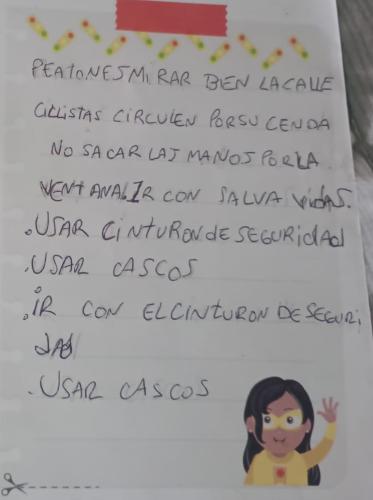 PEATONES MIRAR BIEN LA CALLE
CICLISTAS CIRCULEN POR SU CENDA
NO SACAR LAS MANOS POR LA
VENTANA IR CON SALVA VIDAS.
. USAR CINTURON de SEGURidad
. USAR CASCOS
. iR CON EL CINTURON DE SEGURi
DAD
. USAR CASCOS